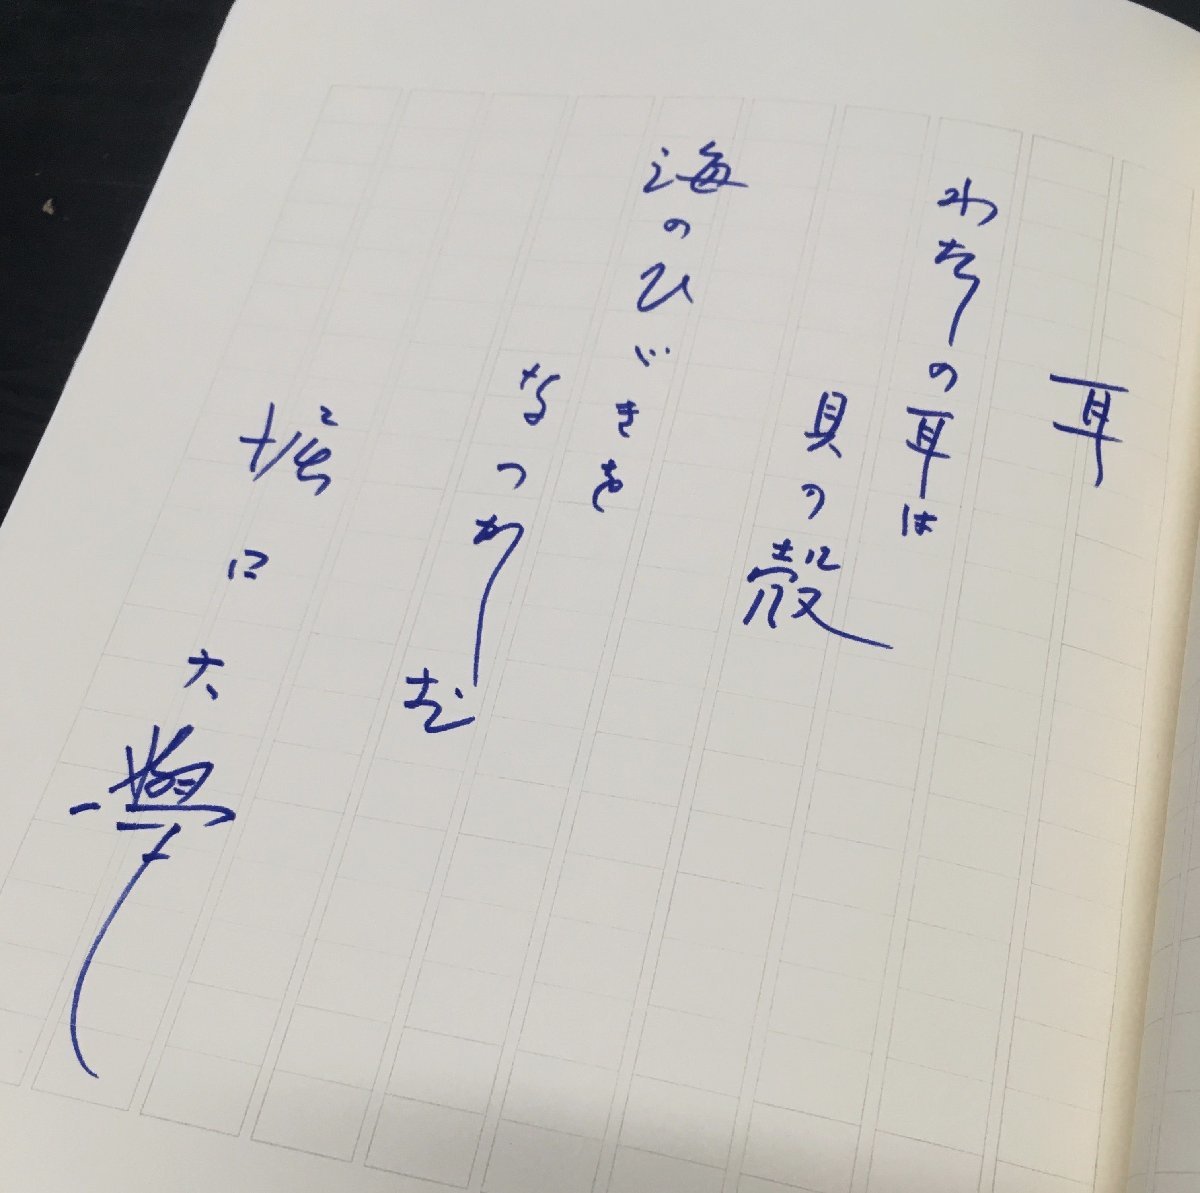 耳
わたしの耳は
貝の殻
海のひびきを
なつかしむ
堀口大學